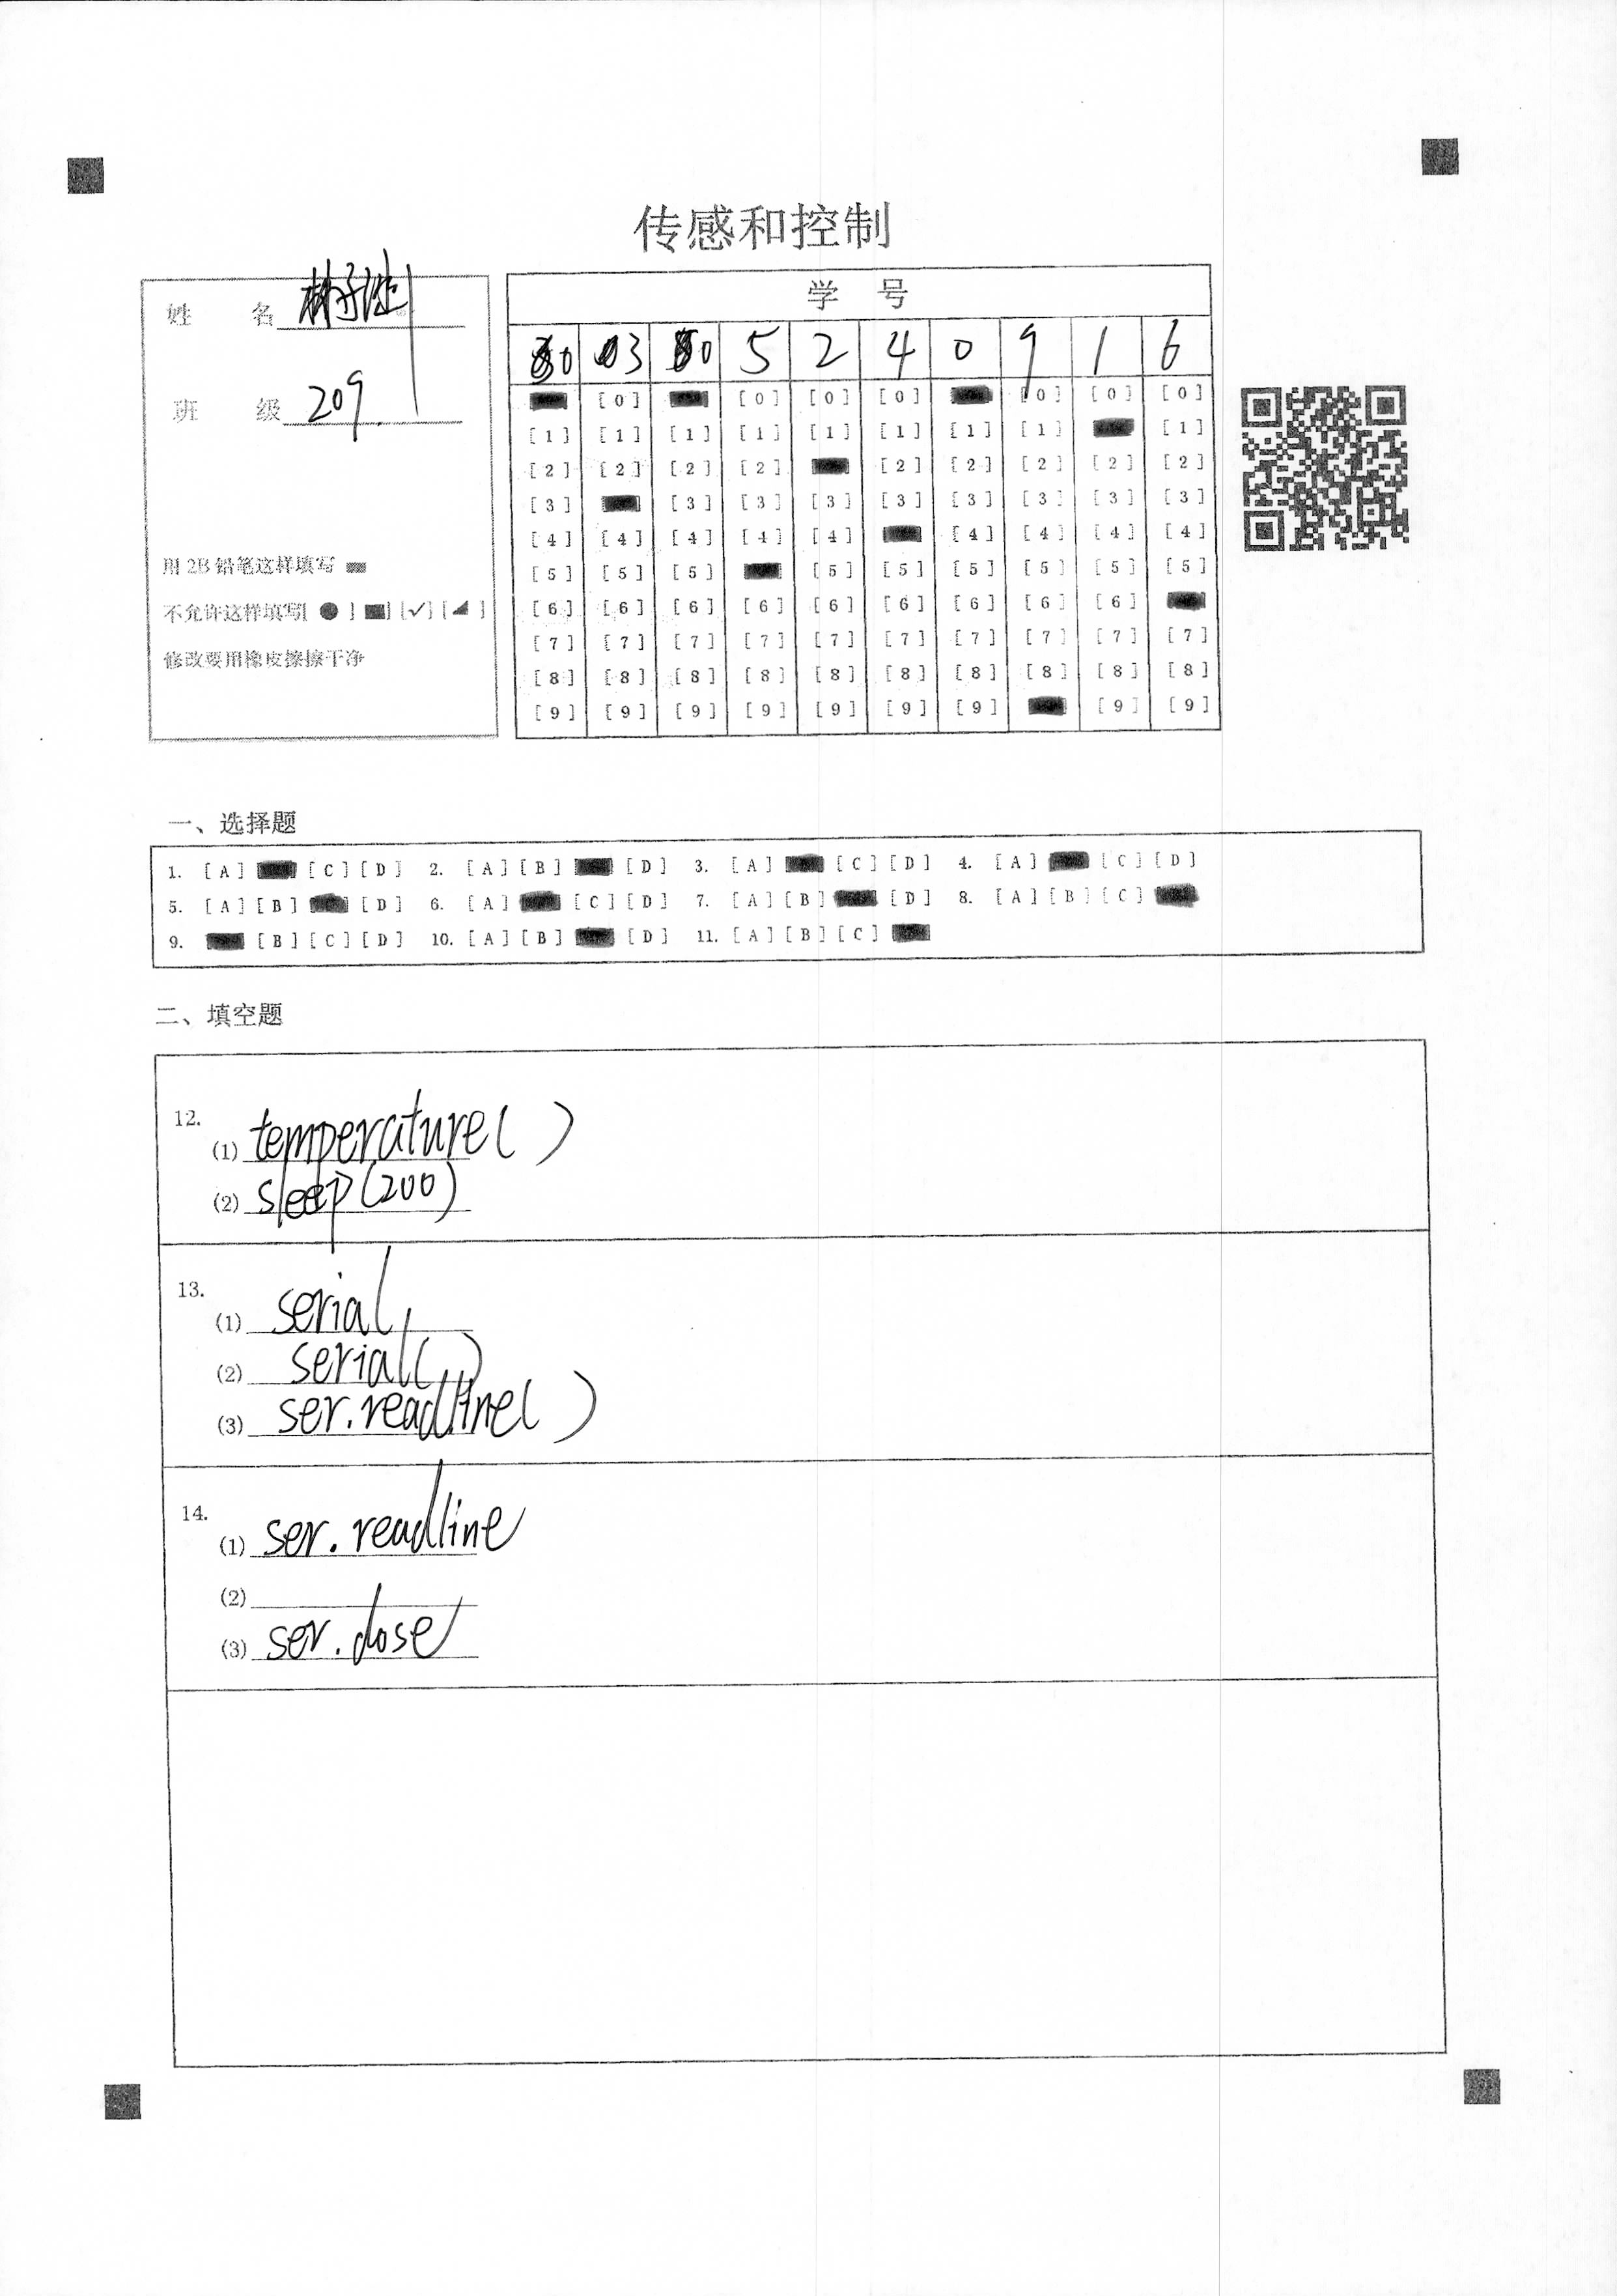 传感和控制
姓 名
班 级 209
用 2B 铅笔这样填写
不允许这样填写[ ● ] [■] [✓] [◢ ]
修改要用橡皮擦擦干净
学 号
0 3 0 5 2 4 0 9 1 6
[0] [0] [0] [0] [0] [0] [0]
[1] [1] [1] [1] [1] [1] [1] [1] [1]
[2] [2] [2] [2] [2] [2] [2] [2] [2]
[3] [3] [3] [3] [3] [3] [3] [3] [3]
[4] [4] [4] [4] [4] [4] [4] [4] [4]
[5] [5] [5] [5] [5] [5] [5] [5] [5]
[6] [6] [6] [6] [6] [6] [6] [6] [6]
[7] [7] [7] [7] [7] [7] [7] [7] [7] [7]
[8] [8] [8] [8] [8] [8] [8] [8] [8] [8]
[9] [9] [9] [9] [9] [9] [9] [9] [9]
一、选择题
1. [A] [C] [D] 2. [A] [B] [D] 3. [A] [C] [D] 4. [A] [C] [D]
5. [A] [B] [D] 6. [A] [C] [D] 7. [A] [B] [D] 8. [A] [B] [C]
9. [B] [C] [D] 10. [A] [B] [D] 11. [A] [B] [C]
二、填空题
12.
(1) temperature( )
(2) sleep(200)
13.
(1) serial
(2) serial( )
(3) ser.readline( )
14.
(1) ser.readline
(2)
(3) ser.close